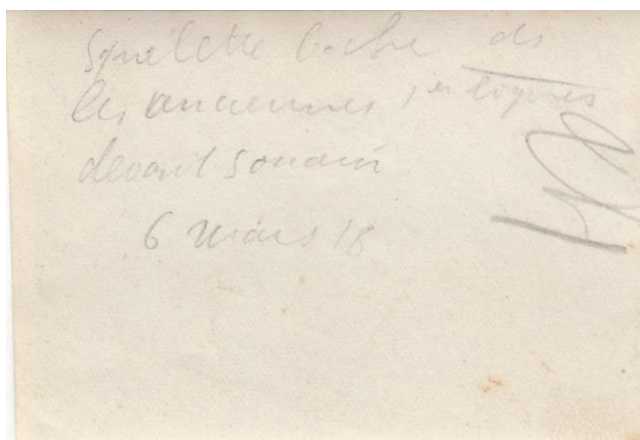 Squelette boche ds
les anciennes 1er lignes
devant Souain
6 mars 18